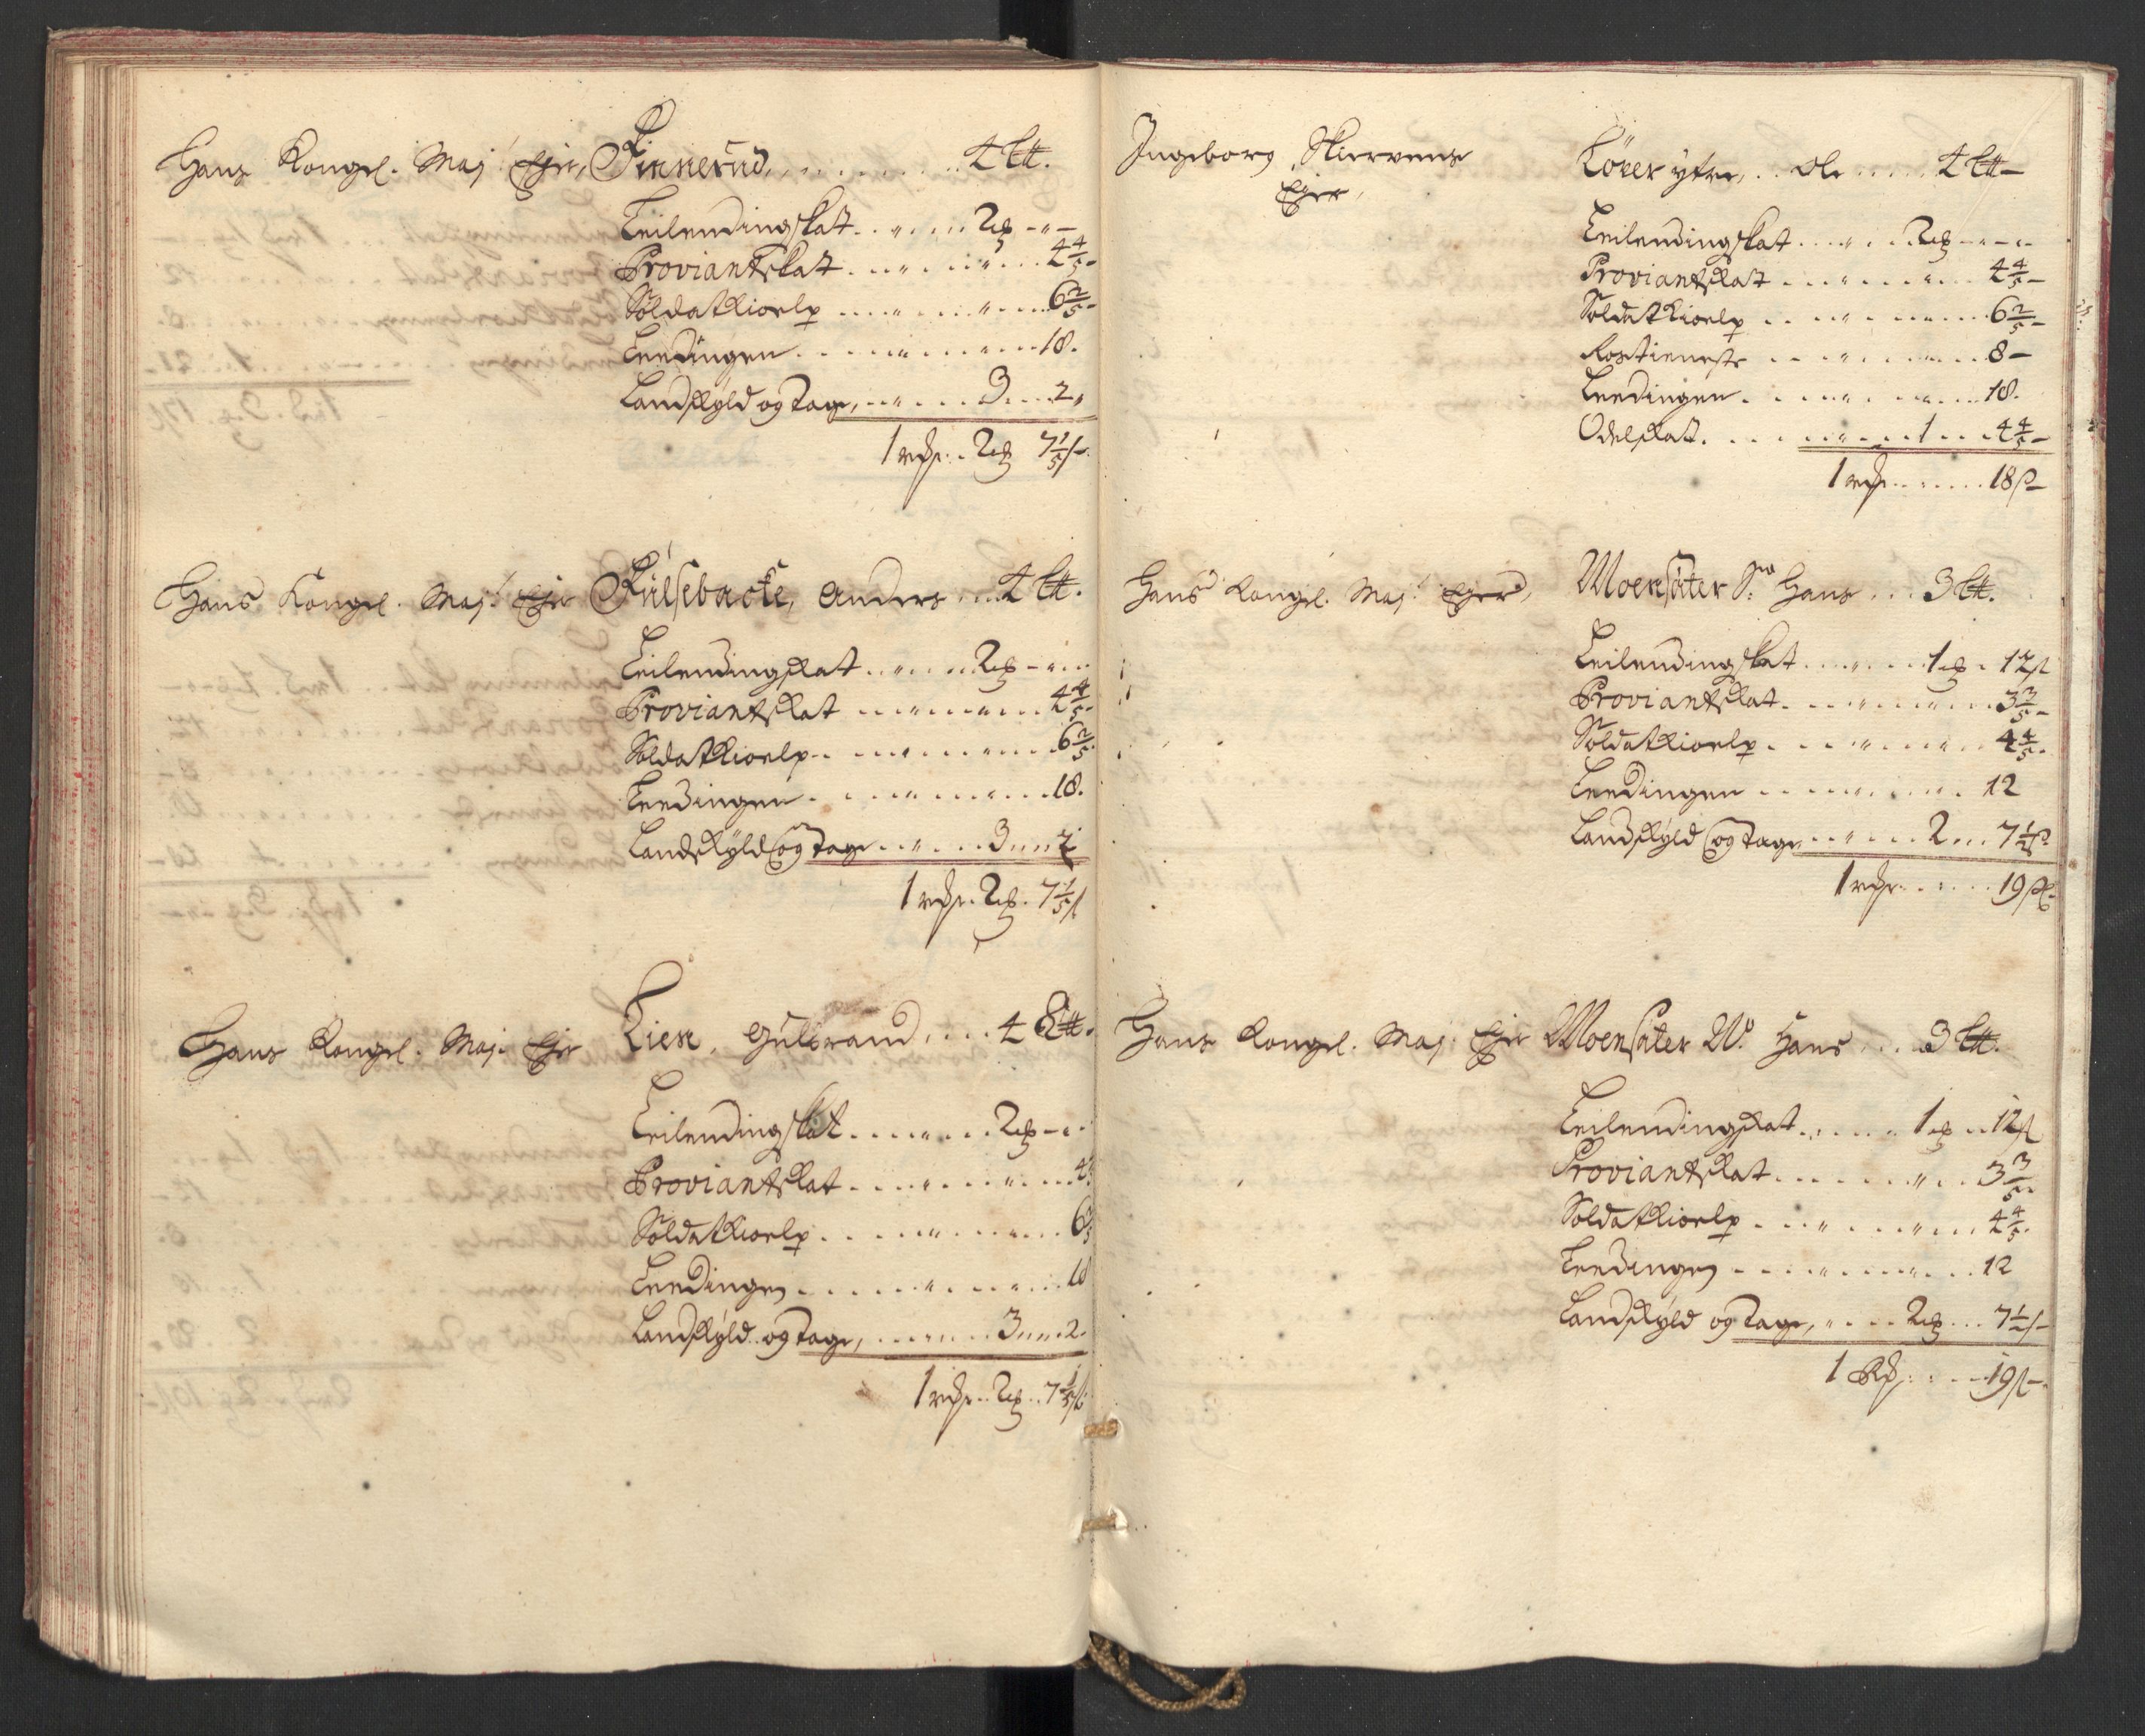 Hans Kongel. Maj.t Ejer, Finnerud, . . . . . . . . 4 L℔.
Leilendingskat . . „ . . . 2 ort - „ -
Proviantskat . . . „ . . . „ . . . 4 4/5 -
Soldatkiorlp . . . „ . . . „ . . . 6 2/5 -
Leedingen . . . „ . . . „ . . . 18.
Landskyld og Tage, . . „ . . . 3 . . . 2 „
1 rdr . . 2 ort 7 1/5 s -
Hans Kongel. Maj.t Ejer Kúlsebacke, Anders . . . 4 L℔.
Leilendingskat . . „ . . . 2 ort - „ . .
Proviantskat . . . „ . . . „ . . . 4 4/5 -
Soldatkiorlp . . . „ . . . „ . . . 6 2/5
Leedingen . . . . „ . . . „ . . . 18.
Landskyld og Tage . . „ . . . 3 . . . 2
1 rdr . 2 ort . 7 1/5 s
Hans Kongel. Maj. Ejer Lien, Gulbrand, . . . 4 L℔.
Leilendingskat . . . . „ . . . 2 ort - „ .
Proviantskat . . . . „ . . . „ . . . 4
Soldatkiorlp . . . . „ . . . „ . . . 6 2/5
Leedingen . . . . . „ . . . „ . . . 18
Landskyld og Tage, . . . „ . . . 3 . . . 2.
1 rdr . . 2 ort . . 7 1/5 s
Ingeborg Skiervens
Ejer,
Löver ytre, . . Ole . . . . . 4 L℔ -
Leilendingskat . . . „ . . . 2 ort - „ - „ -
Proviantskat . . . „ . . . „ . . . 4 4/5 -
Soldatkiorlp . . . „ . . . „ . . . 6 2/5 -
Rostieneste . . . „ . . . „ . . . 8 -
Leedingen . . . „ . . . „ . . . 18.
Odelskat . . . . . „ . . . 1 . . . 4 4/5 -
1 rdr . . . . . . . 18 s -
Hans Kongel. Maj.t Ejer, Moensäter S. Hans . . . 3 L℔.
Leilendingskat . . . „ . . . 1 ort . 12 s
Proviantskat . . . „ . . . „ . . . 3 3/5 -
Soldatkiorlp . . . „ . . . „ . . . 4 4/5 .
Leedingen . . . . „ . . . „ . 12
Landskyld og Tage, . . „ . . . 2 . . . 7 1/2 s
1 rdr . . . . . . 19 s.
Hans Kongel. Maj. Ejer Moensäter N. Hans . . . 3 L℔.
Leilendingskat . . . . . . . 1 ort . . 12 s
Proviantskat . . . . . . „ . . 3 3/5 -
Soldatkiorlp . . . „ . . . „ . . . 4 4/5 .
Leedingen . . . . „ . . . „ . . . 12
Landskyld og Tage, . „ . . . 2 ort . . . 7 1/2 s -
1 Rdr . . . . . 19 s -